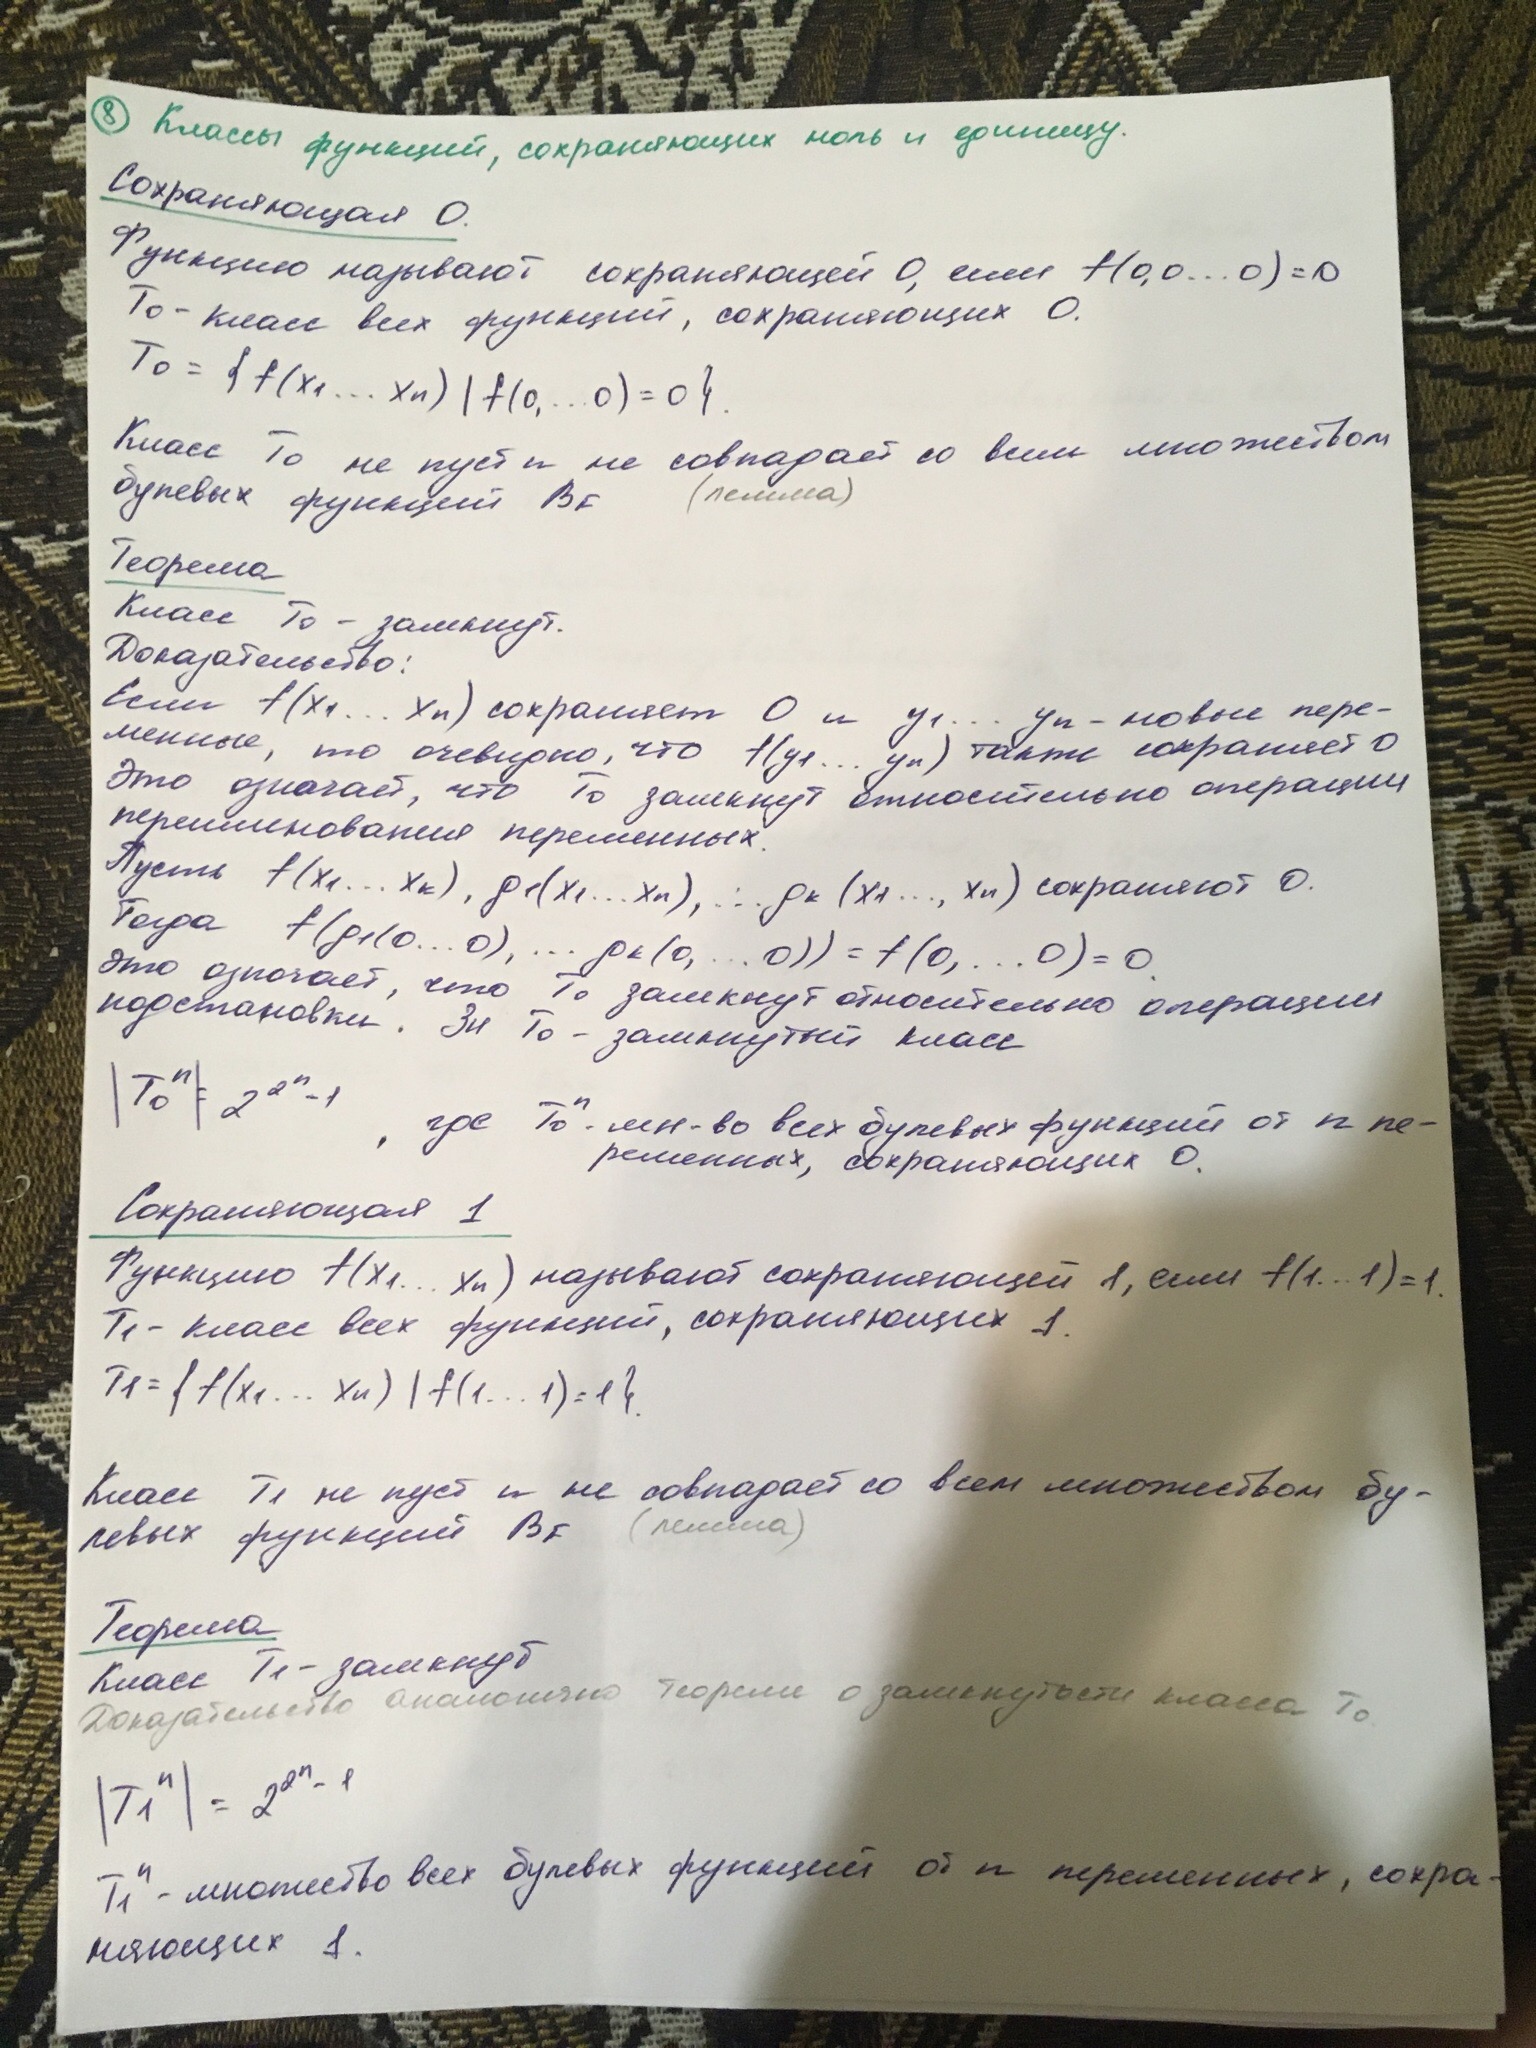 ⑧ Классы функций, сохраняющих ноль и единицу.
Сохраняющая 0.
Функцию называют сохраняющей 0, если f(0,0...0)=0
T₀ - класс всех функций, сохраняющих 0.
T₀ = {f(x₁...xₙ) | f(0,...0)=0}.
Класс T₀ не пуст и не совпадает со всем множеством
булевых функций BF (лемма)
Теорема
Класс T₀ - замкнут.
Доказательство:
Если f(x₁...xₙ) сохраняет 0 и y₁...yₙ - новые пере-
менные, то очевидно, что f(y₁...yₙ) также сохраняет 0
Это означает, что T₀ замкнут относительно операции
переименования переменных.
Пусть f(x₁...xₖ), g₁(x₁...xₙ), ...gₖ(x₁...,xₙ) сохраняют 0.
Тогда f(g₁(0...0), ...gₖ(0,...0)) = f(0,...0)=0.
Это означает, что T₀ замкнут относительно операции
подстановки. Зн T₀ - замкнутый класс
|T₀ⁿ| = 2^(2ⁿ-1), где T₀ⁿ - мн-во всех булевых функций от n пе-
ременных, сохраняющих 0.
Сохраняющая 1
Функцию f(x₁...xₙ) называют сохраняющей 1, если f(1...1)=1.
T₁ - класс всех функций, сохраняющих 1.
T₁ = {f(x₁...xₙ) | f(1...1)=1}.
Класс T₁ не пуст и не совпадает со всем множеством бу-
левых функций BF (лемма)
Теорема
Класс T₁ - замкнут
Доказательство аналогично теореме о замкнутости класса T₀.
|T₁ⁿ| = 2^(2ⁿ-1)
T₁ⁿ - множество всех булевых функций от n переменных, сохра-
няющих 1.